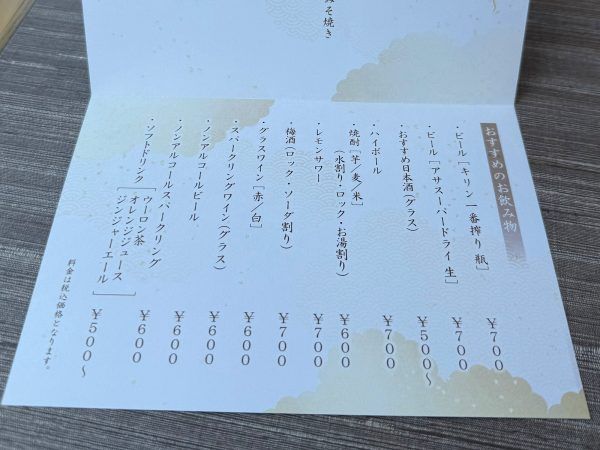 みそ焼き
おすすめのお飲み物
・ビール［キリン一番搾り 瓶］ ￥700
・ビール［アサスーパードライ 生］ ￥700
・おすすめ日本酒（グラス） ￥500～
・ハイボール ￥700
・焼酎［芋／麦／米］
（水割り・ロック・お湯割り） ￥600
・レモンサワー ￥700
・梅酒（ロック・ソーダ割り） ￥700
・グラスワイン［赤／白］ ￥600
・スパークリングワイン（グラス） ￥600
・ノンアルコールビール ￥600
・ノンアルコールスパークリング ￥600
・ソフトドリンク［ウーロン茶
オレンジジュース
ジンジャーエール］ ￥500～
料金は税込価格となります。